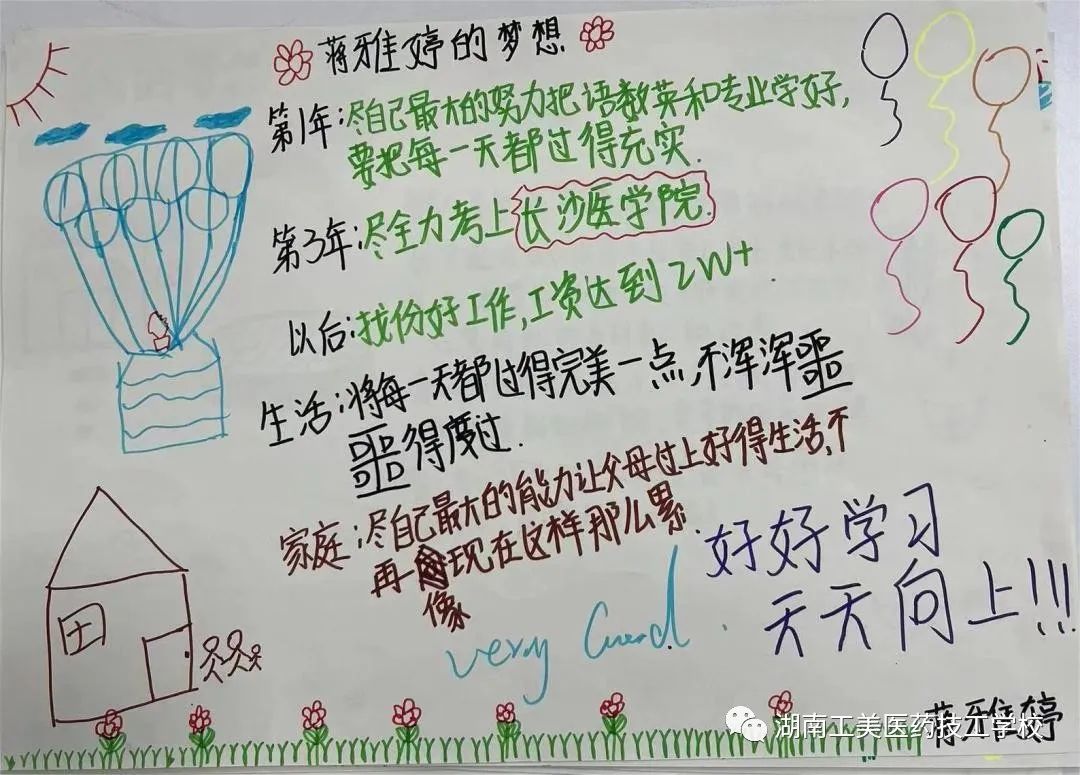 蒋雅婷的梦想
第1年:尽自己最大的努力把语数英和专业学好,
要把每一天都过得充实.
第3年:尽全力考上长沙医学院.
以后:找份好工作,工资达到2W+
生活:将每一天都过得完美一点,不浑浑噩
噩得度过.
家庭:尽自己最大的能力让父母过上好得生活,不
再像现在这样那么累.
very Good.
好好学习
天天向上!!!
蒋雅婷
湖南工美医药技工学校